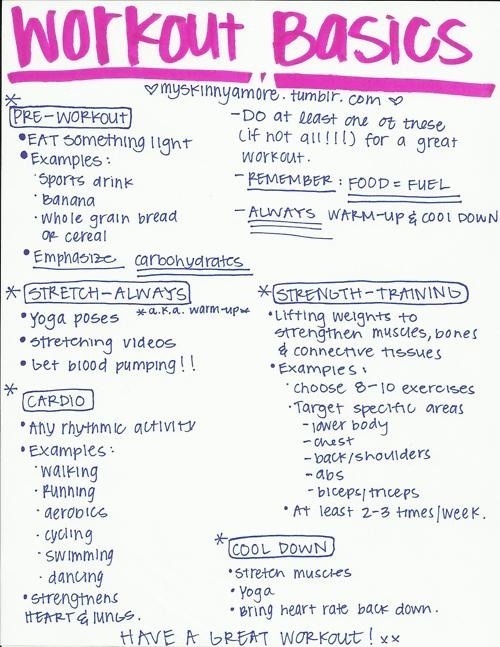 WORKOUT BASICS
♡myskinnyamore.tumblr.com♡
* PRE-WORKOUT
• EAT something light
• Examples:
· Sports drink
· Banana
· Whole grain bread
or cereal
• Emphasize carbohydrates
- DO at least one of these
(if not all!!!) for a great
workout.
- REMEMBER: FOOD = FUEL
- ALWAYS WARM-UP & COOL DOWN
* STRETCH-ALWAYS
*a.k.a. warm-up*
• Yoga poses
• Stretching videos
• Get blood pumping!!
* CARDIO
• Any rhythmic activity
• Examples:
· walking
· Running
· aerobics
· cycling
· swimming
· dancing
• Strengthens
HEART & LUNGS.
* STRENGTH-TRAINING
• Lifting weights to
strengthen muscles, bones
& connective tissues
• Examples:
· choose 8-10 exercises
· Target specific areas
- lower body
- chest
- back/shoulders
- abs
- biceps/triceps
• At least 2-3 times/week.
* COOL DOWN
• Stretch muscles
• Yoga
• Bring heart rate back down.
HAVE A GREAT WORKOUT! xx